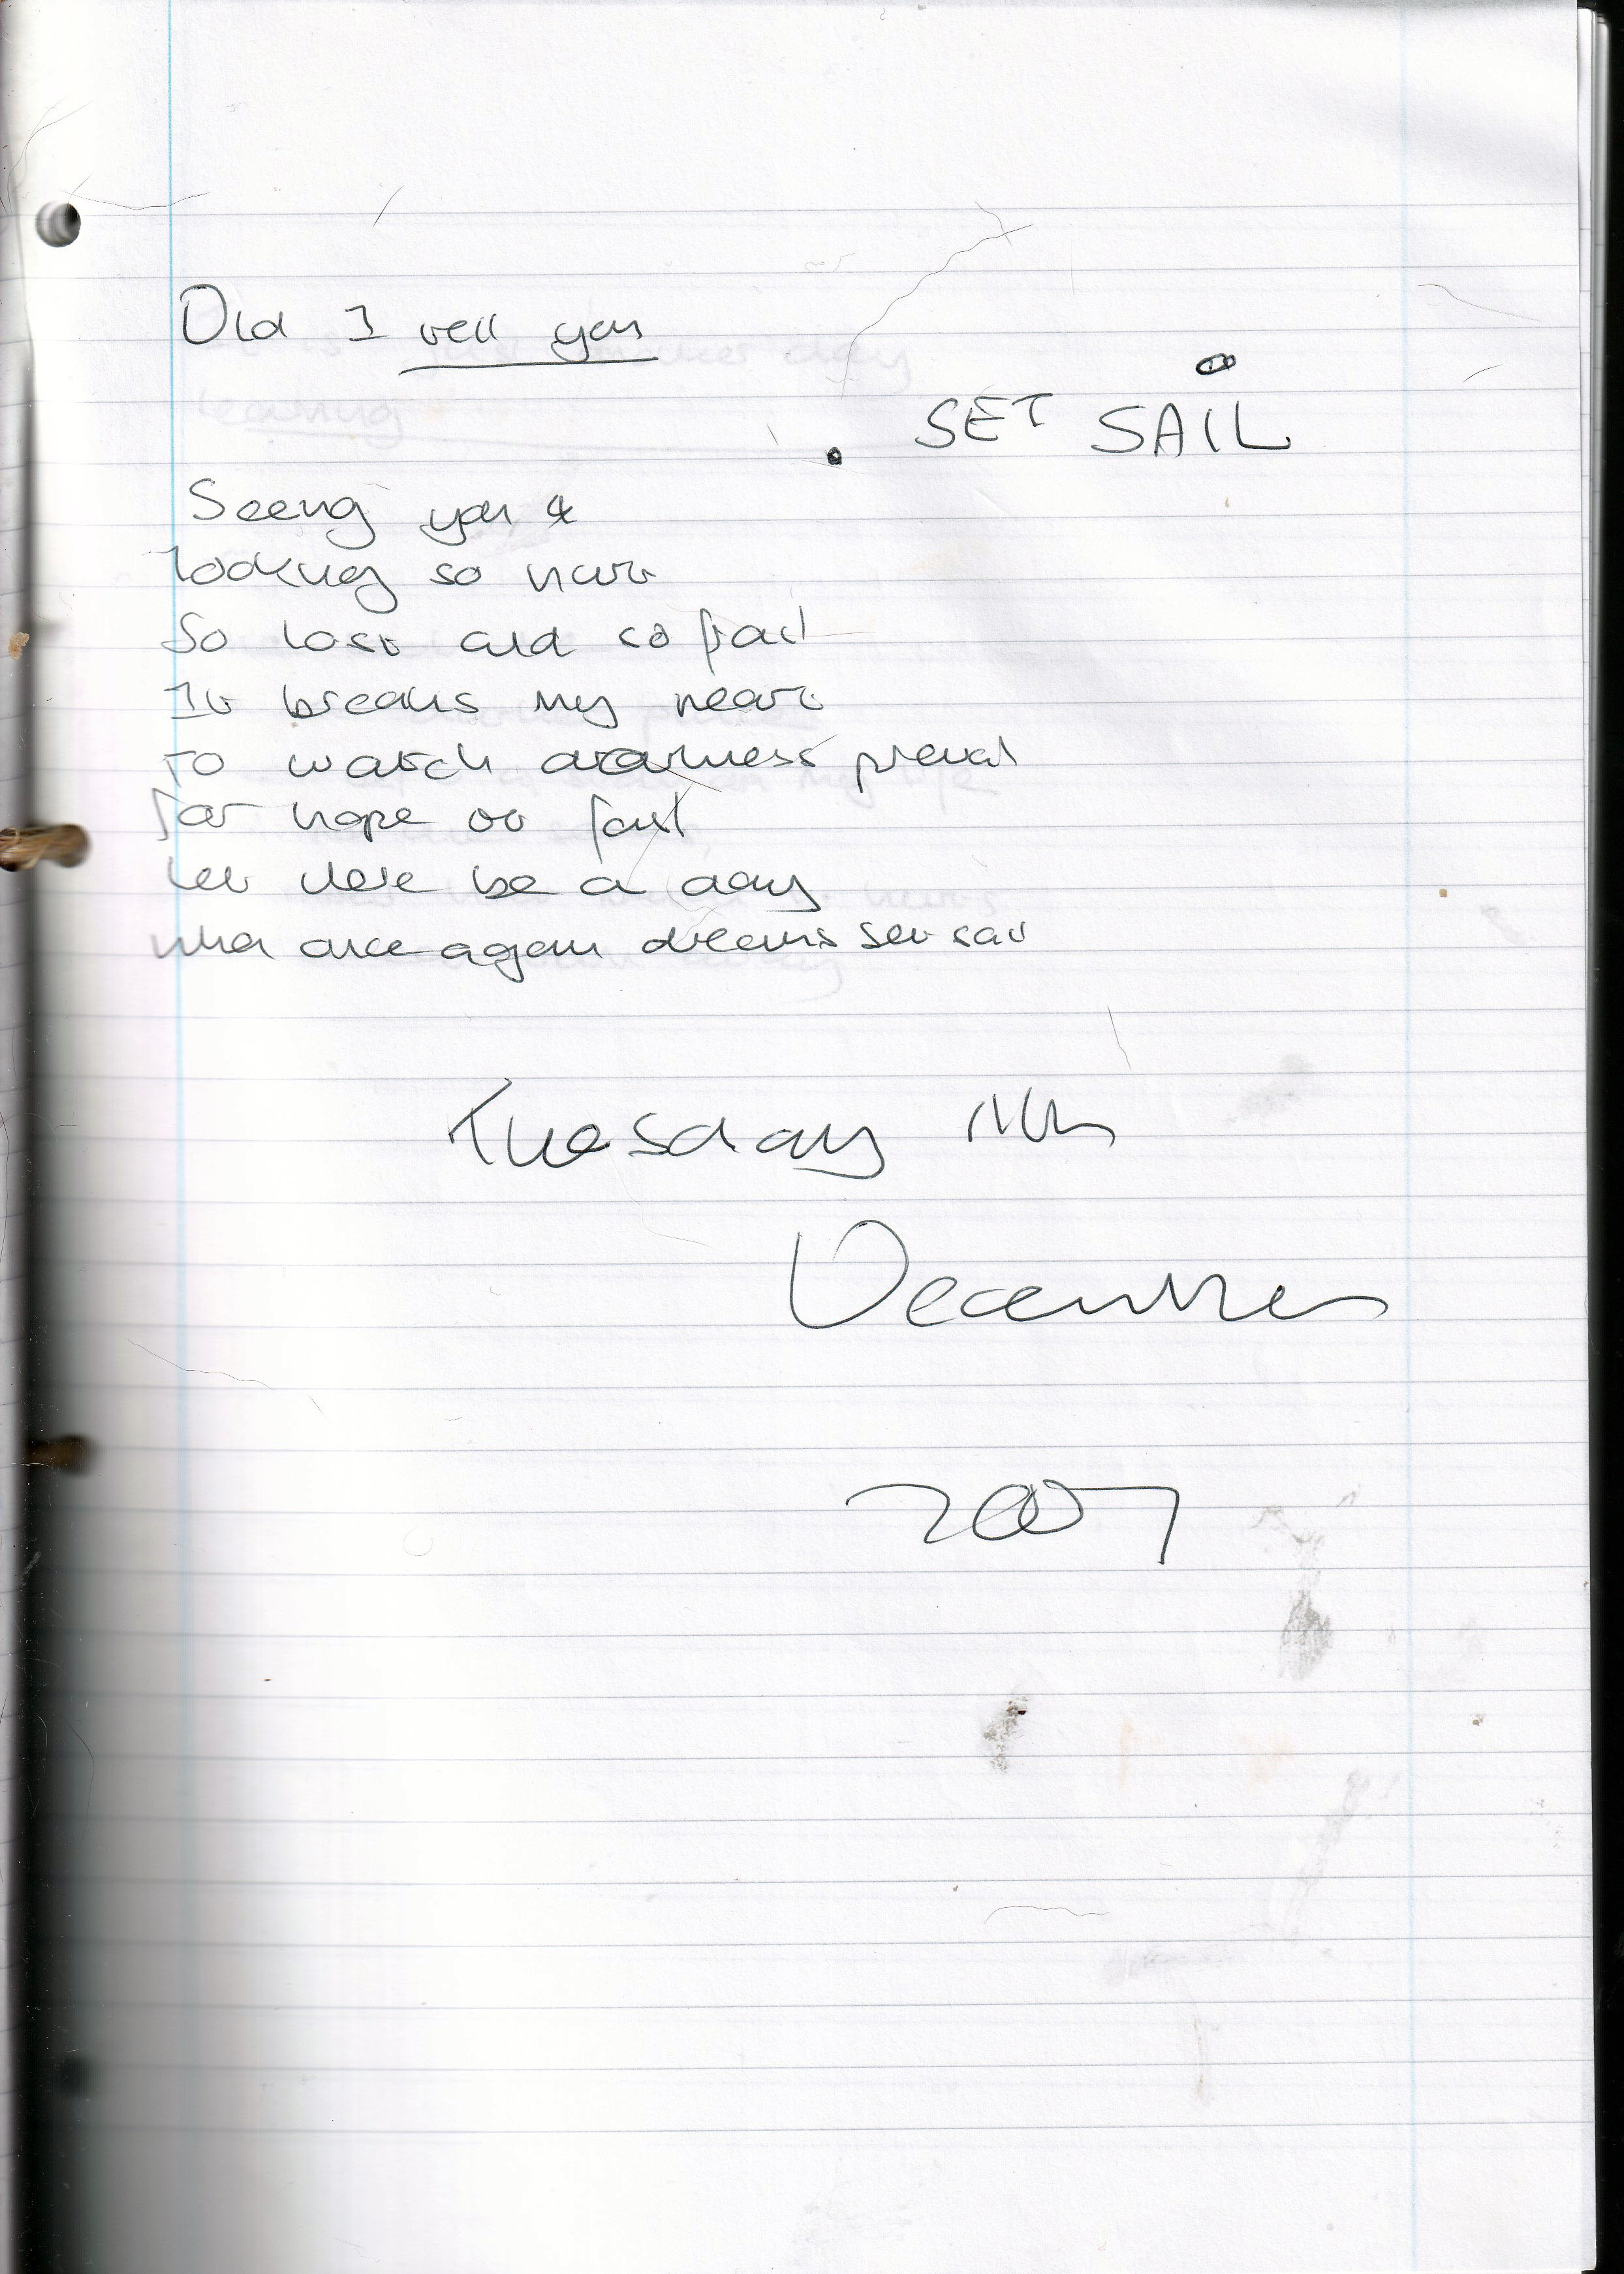 Did I tell you
SET SAIL
Seeing you &
looking so hurt
So lost and so frail
It breaks my heart
To watch darkness prevail
for hope to fail
Let there be a day
when once again dreams set sail
Tuesday 11th
December
2007